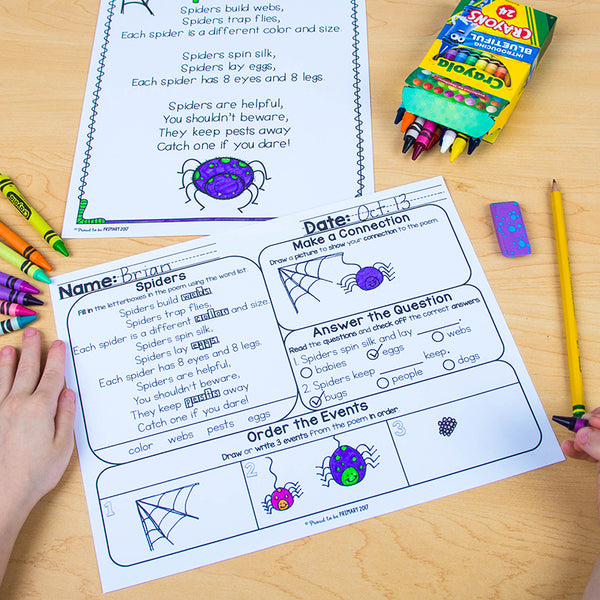 Spiders build webs,
Spiders trap flies,
Each spider is a different color and size.
Spiders spin silk,
Spiders lay eggs,
Each spider has 8 eyes and 8 legs.
Spiders are helpful,
You shouldn't beware,
They keep pests away
Catch one if you dare!
© Proud to be PRIMARY 2017
24
CRAYONS
INTRODUCING
BLUETIFUL
Crayola
Name: Brian
Date: Oct. 13
Spiders
Fill in the letterboxes in the poem using the word list.
Spiders build webs
Spiders trap flies,
Each spider is a different color and size.
Spiders spin silk,
Spiders lay eggs
Each spider has 8 eyes and 8 legs.
Spiders are helpful,
You shouldn't beware,
They keep pests away
Catch one if you dare!
color webs pests eggs
Make a Connection
Draw a picture to show your connection to the poem.
Answer the Question
Read the questions and check off the correct answers
1. Spiders spin silk and lay ____.
babies eggs webs
2. Spiders keep ____ keep.
bugs people dogs
Order the Events
Draw or write 3 events from the poem in order
1
2
3
© Proud to be PRIMARY 2017